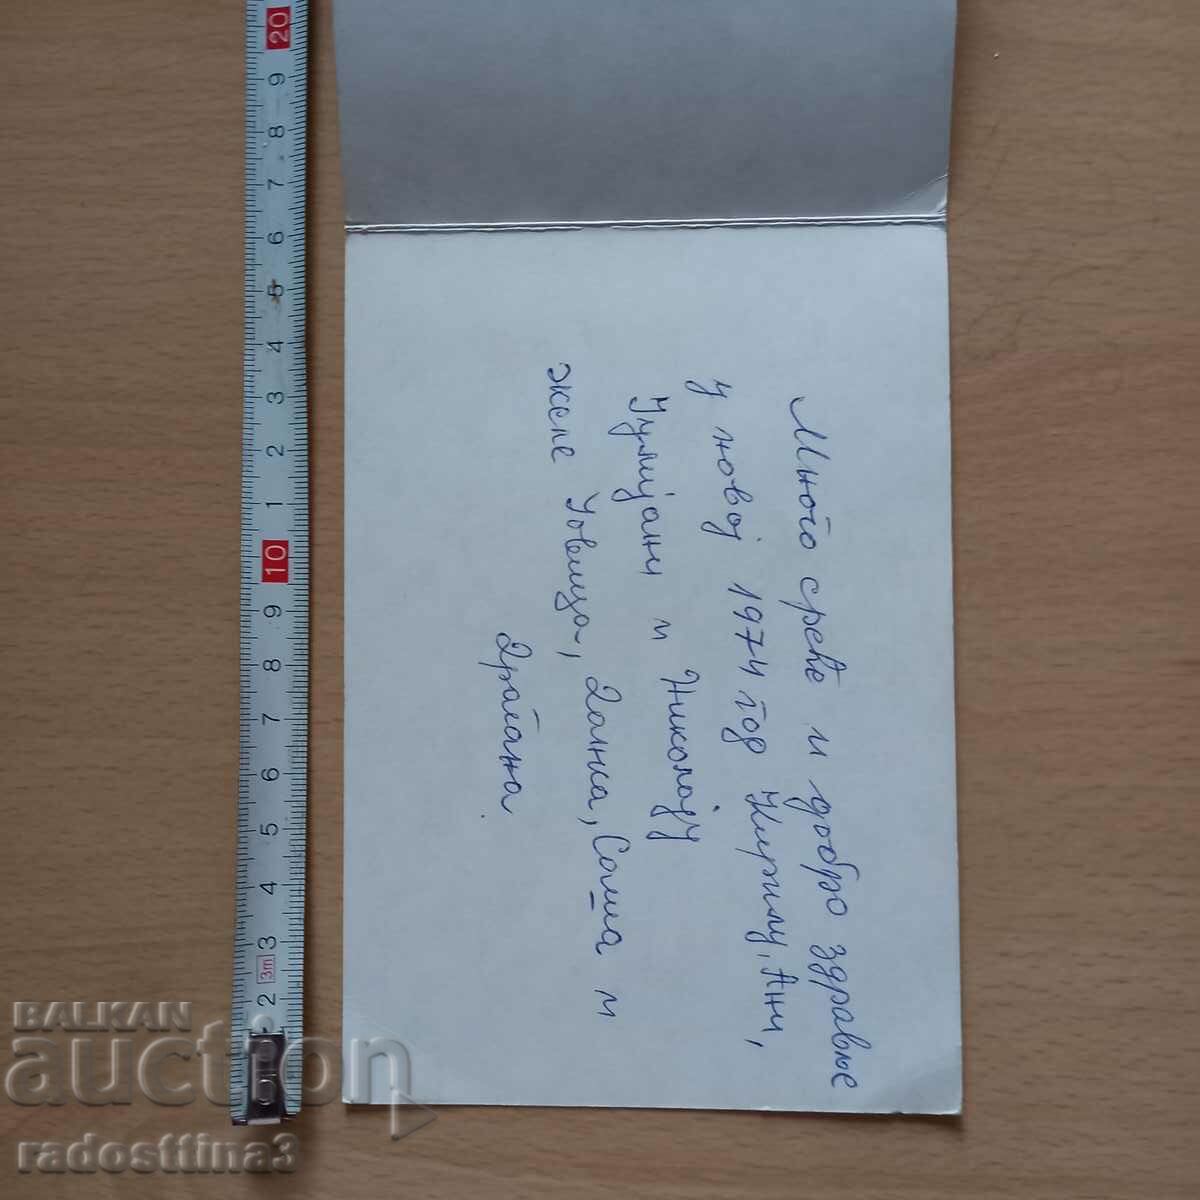 Много среће и добро здравље
у новој 1974 год Кирилу, Ани,
и Николају
желе Јовица, Данка, Саша и
Драгана
20
9
8
7
6
5
4
3
2
1
10
9
8
7
6
5
4
3
3m
2
BALKAN
auction
radosttina3